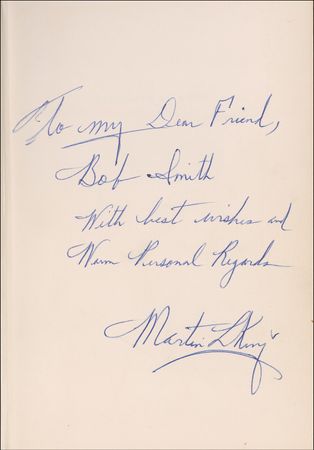 To my Dear Friend,
Bob Smith
With best wishes and
Warm Personal Regards
Martin L King